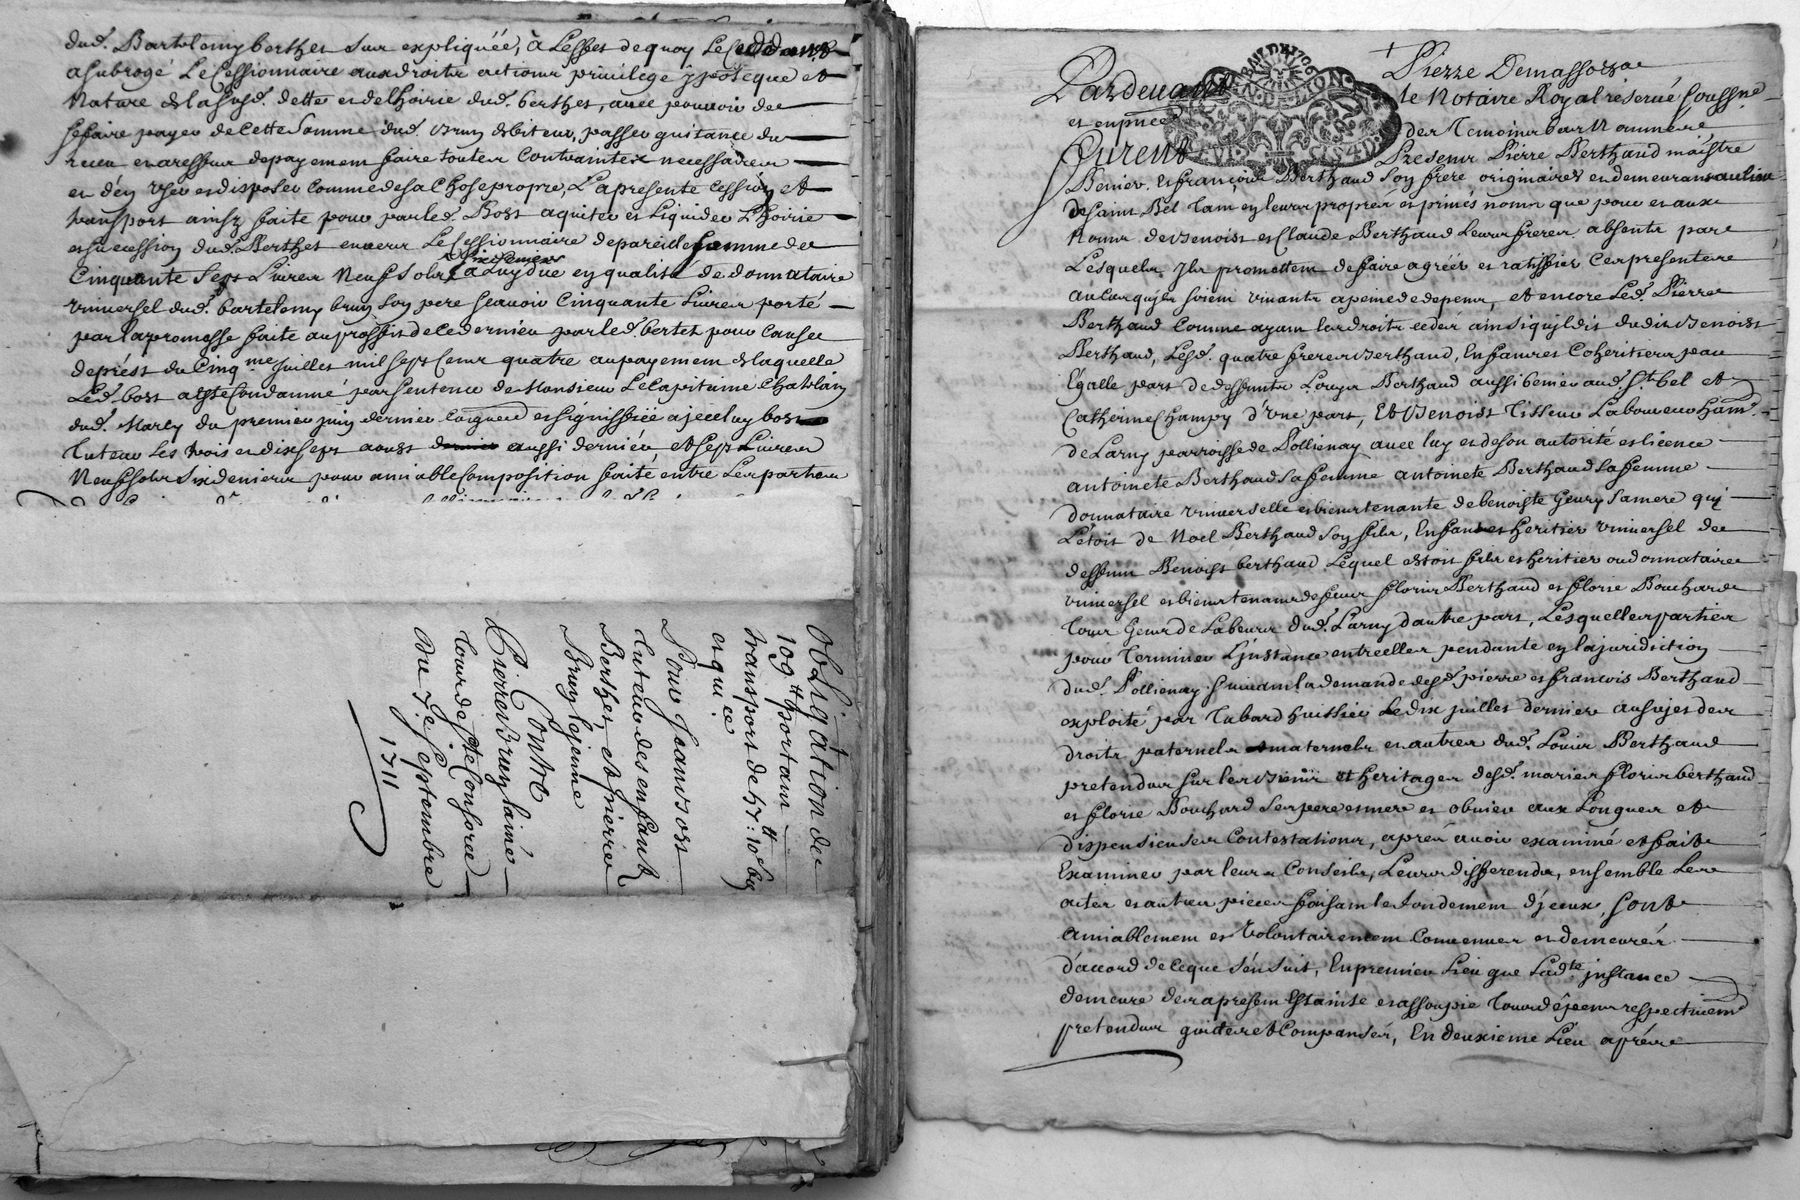 dud. Bartelemy berthet sur expliquée, a L'effet de quoy Le Ceddant
a subrogé Le Cessionnaire aux droits actions privilege ypoteque et
Nature de lasusd. dette et de l'hoirie dud. berthet, avec pouvoir de
se faire payer de cette somme dud. bruy debiteur, passer quitance du
receu et a deffaut de payement faire toutes Contraintes necessaires
et d'en user et disposer comme de sa Chose propre, La presente cession et
transport ainsy faite pour par led. Bost aquiter et Liquider L'hoirie
et succession dud. Berthet envers Le Cessionnaire de pareille somme de
Cinquante Sept Livres Neuf sols six deniers a Luy due en qualité de donnataire
universel dud. bartelemy bruy son pere scavoir Cinquante Livres porté
par la promesse faite au proffit de ce dernier par led. bertet pour cause
de prést du Cinq.me juillet mil sept Cent quatre au payement de laquelle
Led. bost a esté Condamné par sentence de Monsieur Le Capitaine Chatelain
dud. Marcy du premier juin dernier et signiffiée a jceluy bost
Tuteur les trois et dix sept aoust aussi dernier, et sept Livres
Neuf sols six deniers pour amiable Composition faite entre Les parties
obligation de
109 ₶ portant
transport de 57 ₶: 10 s 6 d
et quitce
Pour Jean Bost
Tuteur des enfants
Berthet et Pierre
Bruy le jeune
Contre
Pierre Bruy laine
tour de Ste Consorce
Du 7.e Septembre
1711
Pierre Demassoz
Pardevant le Notaire Royal reservé soussné
et en pnce des Temoins bas Nommés
Furent Presents Pierre Berthaud maistre
Benier, et françois Berthaud son frere originaires et demeurants au lieu
de saint Bel tant en leurs propres et privés noms que pour et aux
Noms de Benoist et Claude Berthaud Leurs freres absents par
Lesquels Ils promettent de faire agréer et ratiffier Ces presentes
au Cas qu'ils soient vivants a peine de depens, et encore Led. Pierre
Berthaud Comme ayant les droits cedés ainsi qu'il dit dudit Benoist
Berthaud, Lesd. quatre freres Berthaud, Enfans et Coheritiers pour
Egalle part de deffunts Louys Berthaud aussi benier aud. St. bel et
Catherine Champy d'une part, Et Benoist Tisseur Laboureur ham.
de Larny parroisse de Pollienay avec luy et de son autorité et licence
antoinete Berthaud sa femme antoinete Berthaud sa femme
donnataire universelle et bien tenante de benoiste Geury sa mere qui
L'etoit de Noel Berthaud son fils, Enfant et heritier universel de
deffunt Benoist berthaud Lequel etoit fils et heritier ou donnataire
universel et bien tenant de feux floris Berthaud et florie Bouchard
Tous Gens de Labeurs dud. Larny d'autre part, Lesquelles parties
pour Terminer L'jnstance entre elles pendante en la juridiction
dud. Pollienay suivant la demande desd. pierre et francois Berthaud
exploité par Tabard huissier Le dix juillet dernier au sujet des
droits paternels et maternels et autres dud. Louis Berthaud
pretendus sur les Biens et heritages desd. mariés floris berthaud
et florie Bouchard ses pere et mere et obvier aux Longues et
dispendieuses Contestations, aprés avoir examiné et fait
Examiner par leurs Conseils, Leurs differends, ensemble les
actes et autres pieces faisant le fondement d'jceux, sont
amiablement et Volontairement Convenues et demeurés
d'accord de ce que s'en suit, En premier Lieu que Ladte jnstance
demeure des a present Estainte et assoupie Tous dépens respectivemt
pretendus quites et Compensés, En deuxieme Lieu aprés